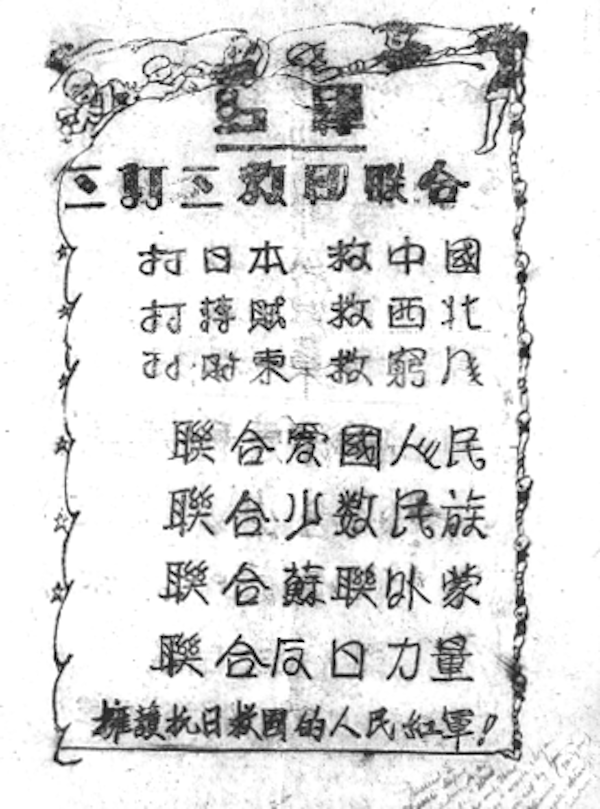 紅軍
三打三救四联合
打日本 救中國
打蔣賊 救西北
打財東 救窮人
聯合爱國人民
聯合少数民族
聯合蘇聯外蒙
聯合反日力量
擁護抗日救國的人民紅軍!